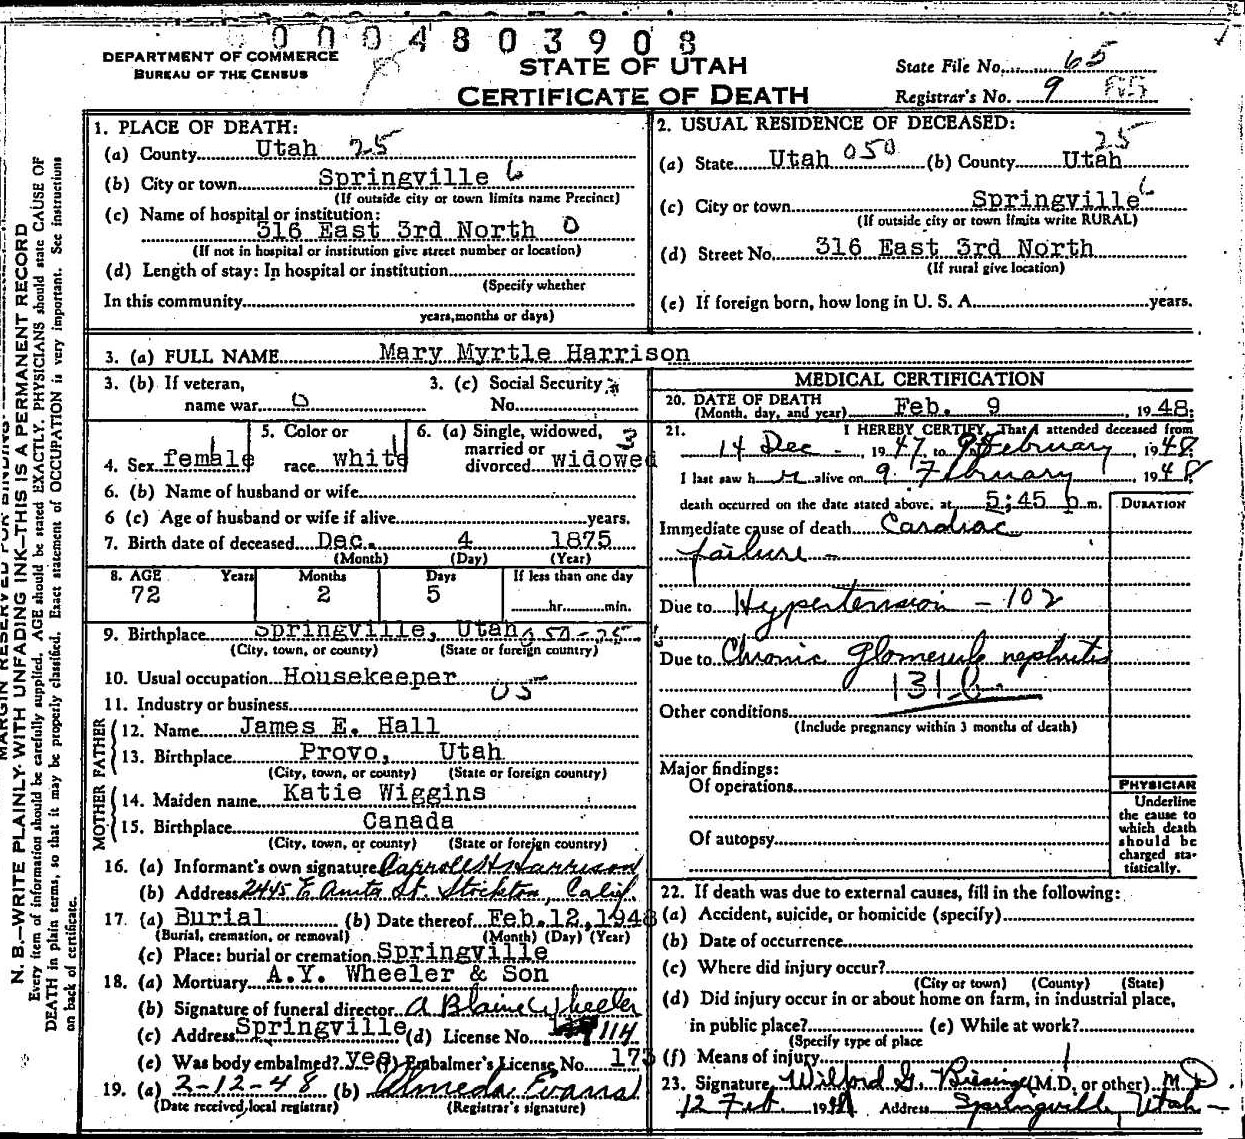 0004803908
DEPARTMENT OF COMMERCE
BUREAU OF THE CENSUS
STATE OF UTAH
CERTIFICATE OF DEATH
State File No. 65
Registrar's No. 9
1. PLACE OF DEATH:
(a) County Utah 25
(b) City or town Springville 6
(If outside city or town limits name Precinct)
(c) Name of hospital or institution:
316 East 3rd North 0
(If not in hospital or institution give street number or location)
(d) Length of stay: In hospital or institution
(Specify whether
In this community
years, months or days)
2. USUAL RESIDENCE OF DECEASED:
25
(a) State Utah 050 (b) County Utah
(c) City or town Springville 6
(If outside city or town limits write RURAL)
(d) Street No. 316 East 3rd North
(If rural give location)
(e) If foreign born, how long in U. S. A. years.
3. (a) FULL NAME Mary Myrtle Harrison
3. (b) If veteran, name war 0
3. (c) Social Security No.
4. Sex female
5. Color or race white
6. (a) Single, widowed, married or divorced widowed
6. (b) Name of husband or wife
6 (c) Age of husband or wife if alive years.
7. Birth date of deceased Dec. 4 1875
(Month) (Day) (Year)
8. AGE Years Months Days If less than one day
72 2 5 hr. min.
9. Birthplace Springville, Utah 050-25
(City, town, or county) (State or foreign country)
10. Usual occupation Housekeeper 05
11. Industry or business
FATHER
12. Name James E. Hall
13. Birthplace Provo, Utah
(City, town, or county) (State or foreign country)
MOTHER
14. Maiden name Katie Wiggins
15. Birthplace Canada
(City, town, or county) (State or foreign country)
16. (a) Informant's own signature Carroll H Harrison
(b) Address 2445 E. Anita St. Stockton, Calif.
17. (a) Burial (b) Date thereof Feb. 12, 1948
(Burial, cremation, or removal) (Month) (Day) (Year)
(c) Place: burial or cremation Springville
18. (a) Mortuary A.Y. Wheeler & Son
(b) Signature of funeral director A Blaine Wheeler
(c) Address Springville (d) License No. 114
(e) Was body embalmed? yes (f) Embalmer's License No. 173
19. (a) 2-12-48 (b) Almeda Evans
(Date received local registrar) (Registrar's signature)
MEDICAL CERTIFICATION
20. DATE OF DEATH
(Month, day, and year) Feb. 9, 1948:
21. I HEREBY CERTIFY, That I attended deceased from
14 Dec -, 1947, to 9 February, 1948
I last saw h er alive on 9 February 1948
death occurred on the date stated above, at 5:45 p.m.
DURATION
Immediate cause of death Cardiac
failure -
Due to Hypertension - 102
Due to Chronic glomerulo nephritis
131-b
Other conditions
(Include pregnancy within 3 months of death)
Major findings:
Of operations
Of autopsy
PHYSICIAN
Underline
the cause to
which death
should be
charged sta-
tistically.
22. If death was due to external causes, fill in the following:
(a) Accident, suicide, or homicide (specify)
(b) Date of occurrence
(c) Where did injury occur?
(City or town) (County) (State)
(d) Did injury occur in or about home on farm, in industrial place,
in public place? (e) While at work?
(Specify type of place
(f) Means of injury
23. Signature Wilford G. (M.D. or other) M D.
12 Feb. 1948 Address Springville, Utah -
N. B.—WRITE PLAINLY WITH UNFADING INK—THIS IS A PERMANENT RECORD
Every item of information should be carefully supplied. AGE should be stated EXACTLY. PHYSICIANS should state CAUSE OF
DEATH in plain terms, so that it may be properly classified. Exact statement of OCCUPATION is very important. See instructions
on back of certificate.